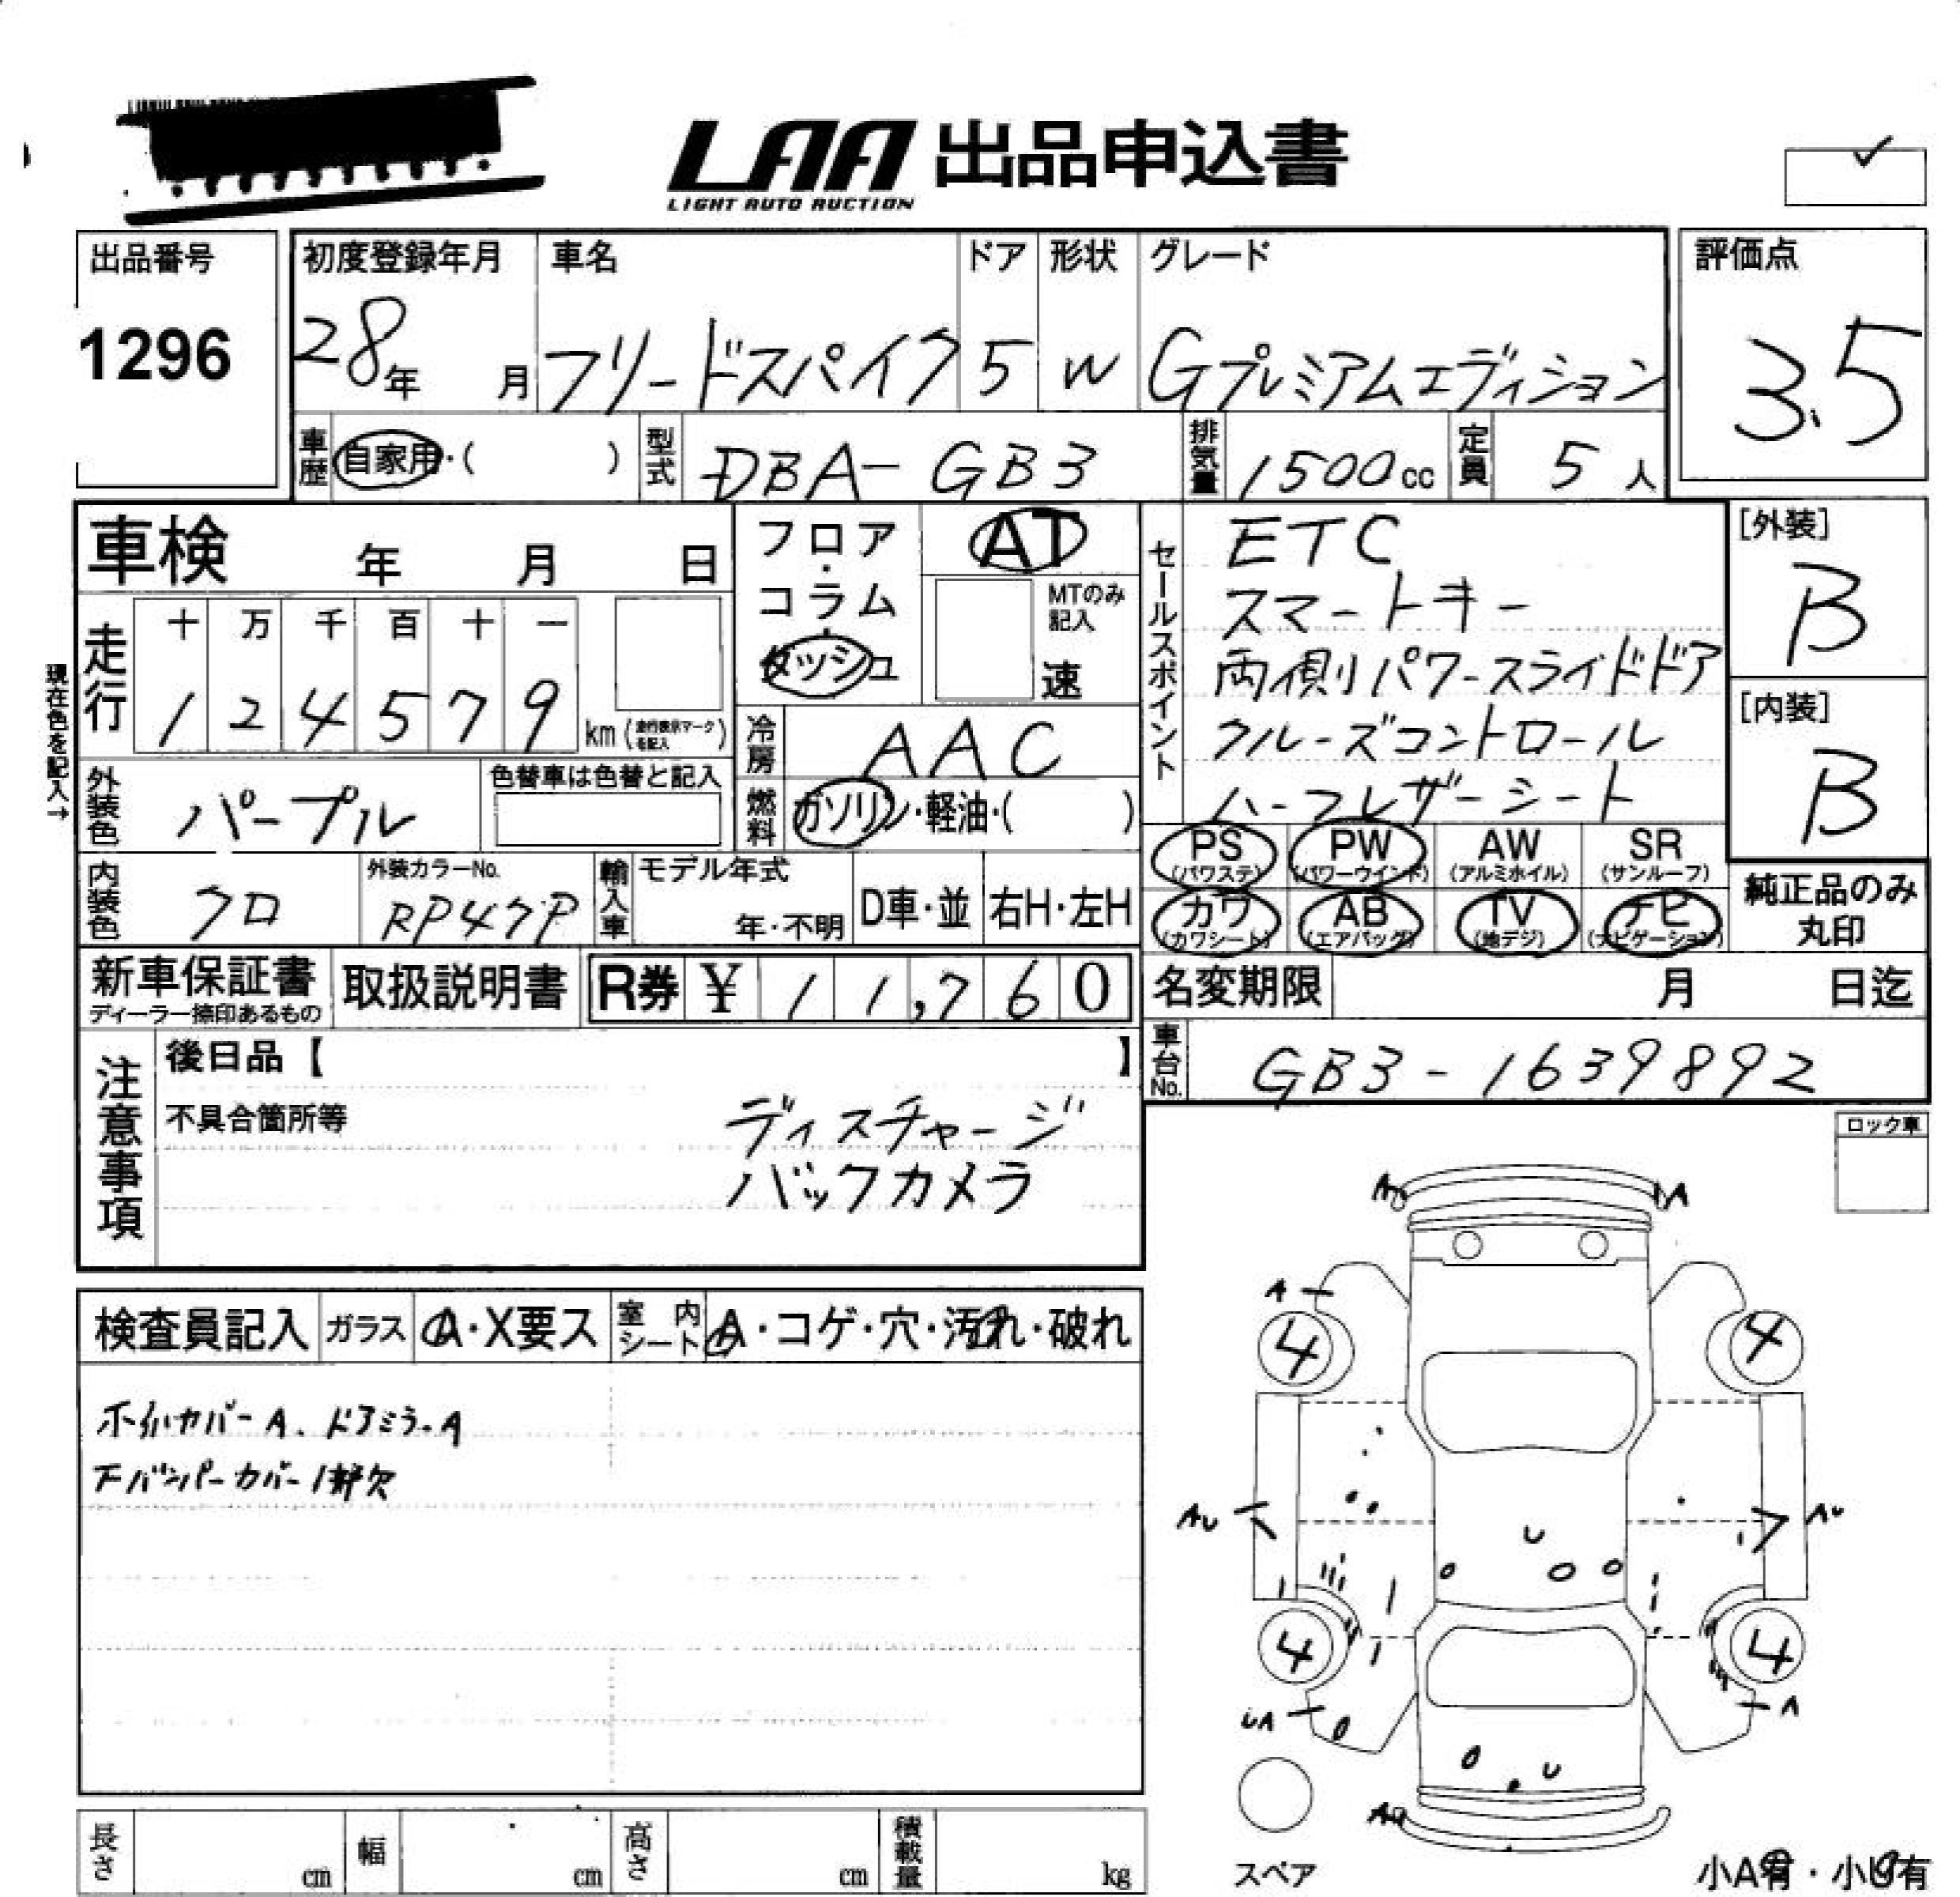 LAA 出品申込書
LIGHT AUTO AUCTION
出品番号
1296
初度登録年月 車名 ドア 形状 グレード 評価点
28年 月 フリードスパイク 5 W Gプレミアムエディション 3.5
車歴 自家用・( ) 型式 DBA-GB3 排気量 1500cc 定員 5人
車検 年 月 日
フロア・コラム・ダッシュ
AT
MTのみ記入
速
走行 十 万 千 百 十 一
1 2 4 5 7 9
km (走行表示マークを記入)
現在色を記入→
冷房 AAC
外装色 パープル
色替車は色替と記入
燃料 ガソリン・軽油・( )
内装色 クロ
外装カラーNo.
RP47P
輸入車 モデル年式
年・不明 D車・並 右H・左H
セールスポイント
ETC
スマートキー
両側パワースライドドア
クルーズコントロール
ハーフレザーシート
[外装]
B
[内装]
B
PS PW AW SR
(パワステ) (パワーウインド) (アルミホイル) (サンルーフ)
カワ AB TV ナビ
(カワシート) (エアバッグ) (地デジ) (ナビゲーション)
純正品のみ
丸印
新車保証書
ディーラー捺印あるもの
取扱説明書 R券 ¥ 11,760
名変期限 月 日迄
車台No. GB3-1639892
注意事項
後日品【 】
不具合箇所等
ディスチャージ
バックカメラ
ロック車
検査員記入 ガラス A・X要ス 室内シート A・コゲ・穴・汚れ・破れ
ホイルカバーA、ドアミラーA
Fバンパーカバー1部欠
A A
A
4 4
AU AU
4 4
UA A
A
スペア
長さ cm 幅 cm 高さ cm 積載量 kg
小A有・小U有